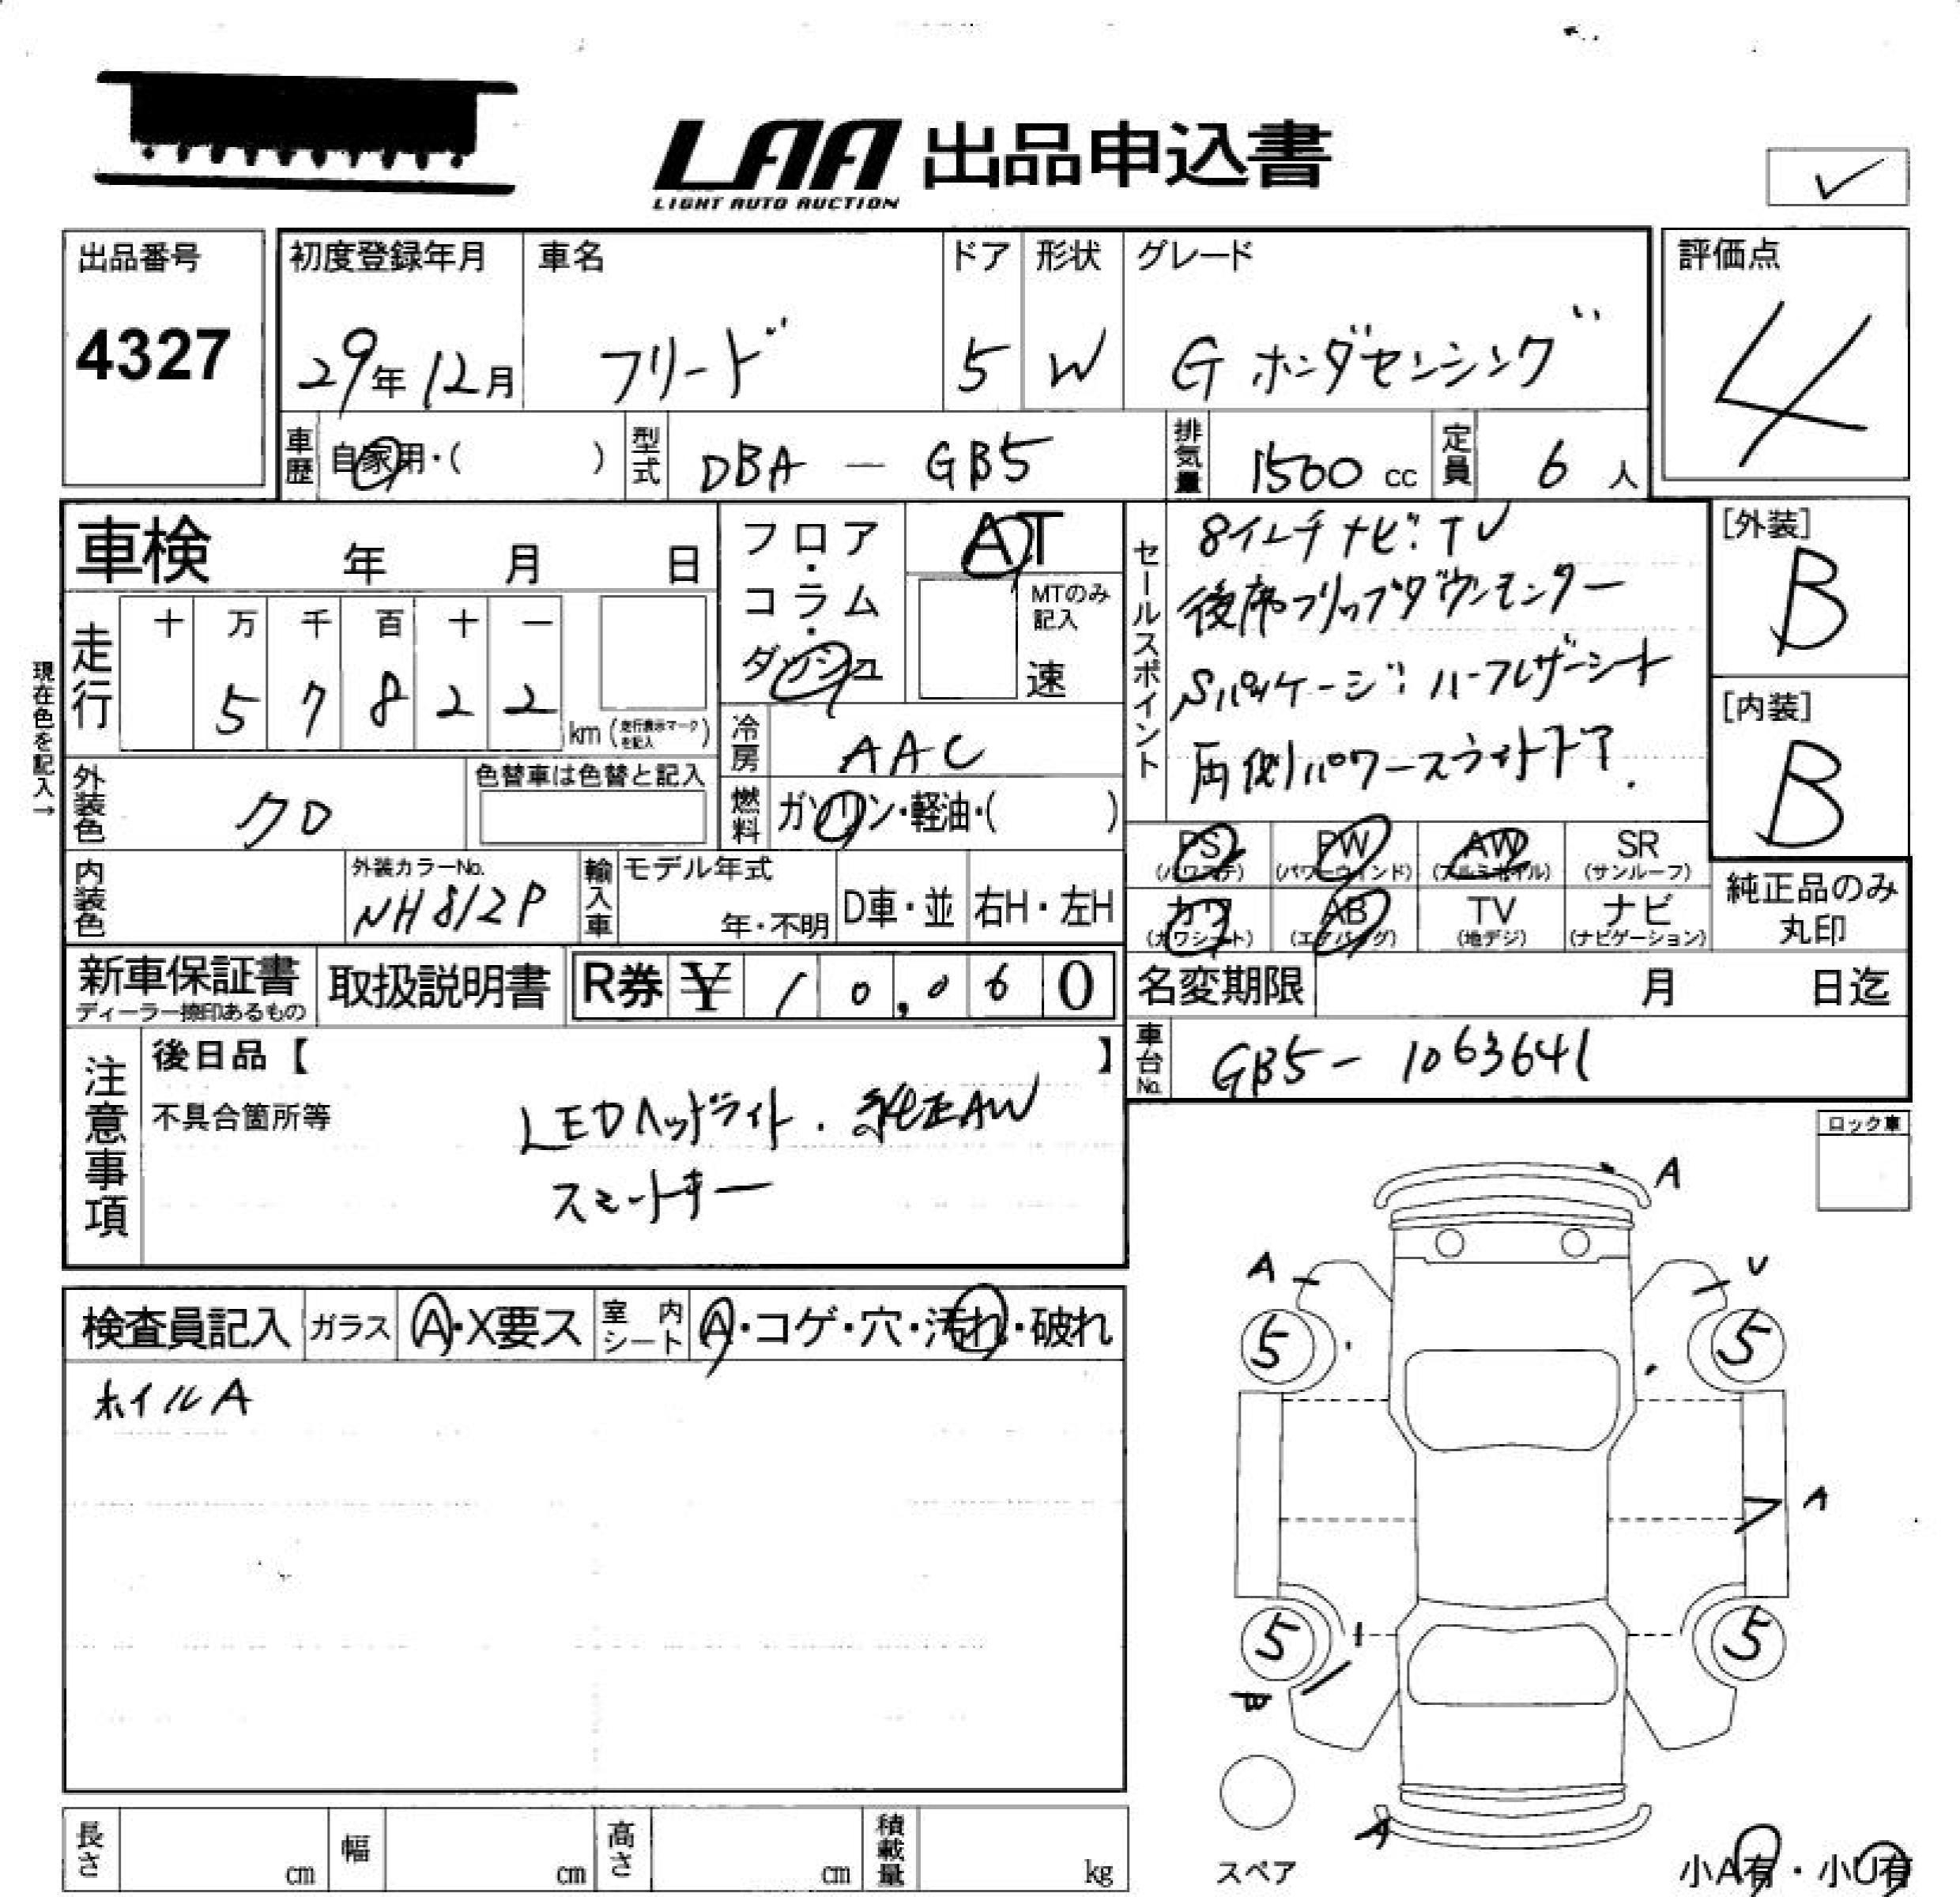 LAA 出品申込書
LIGHT AUTO AUCTION
✓
出品番号
4327
初度登録年月
29年12月
車名
フリード
ドア
5
形状
W
グレード
G ホンダセンシング
評価点
4
車歴
自家用・( )
型式
DBA - GB5
排気量
1500 cc
定員
6 人
車検 年 月 日
フロア・コラム・ダッシュ
AT
MTのみ記入
速
セールスポイント
8インチナビ:TV
後席フリップダウンモニター
Sパッケージ:ハーフレザーシート
両側パワースライドドア.
[外装]
B
[内装]
B
現在色を記入→
走行
十 万 千 百 十 一
5 7 8 2 2
km (走行表示マークを記入)
冷房
AAC
外装色
クロ
色替車は色替と記入
燃料
ガソリン・軽油・( )
PS (パワステ)
PW (パワーウィンド)
AW (アルミホイル)
SR (サンルーフ)
カワ (カワシート)
AB (エアバッグ)
TV (地デジ)
ナビ (ナビゲーション)
純正品のみ丸印
内装色
外装カラーNo.
NH812P
輸入車
モデル年式
年・不明
D車・並
右H・左H
新車保証書
ディーラー捺印あるもの
取扱説明書
R券 ¥ 10,060
名変期限 月 日迄
車台No.
GB5-1063641
注意事項
後日品【 】
不具合箇所等
LEDヘッドライト.純正AW
スマートキー
ロック車
検査員記入
ガラス
A・X要ス
室内シート
A・コゲ・穴・汚れ・破れ
ホイルA
A
A
U
5
5
A
5
5
A
スペア
小A有・小U有
長さ cm
幅 cm
高さ cm
積載量 kg